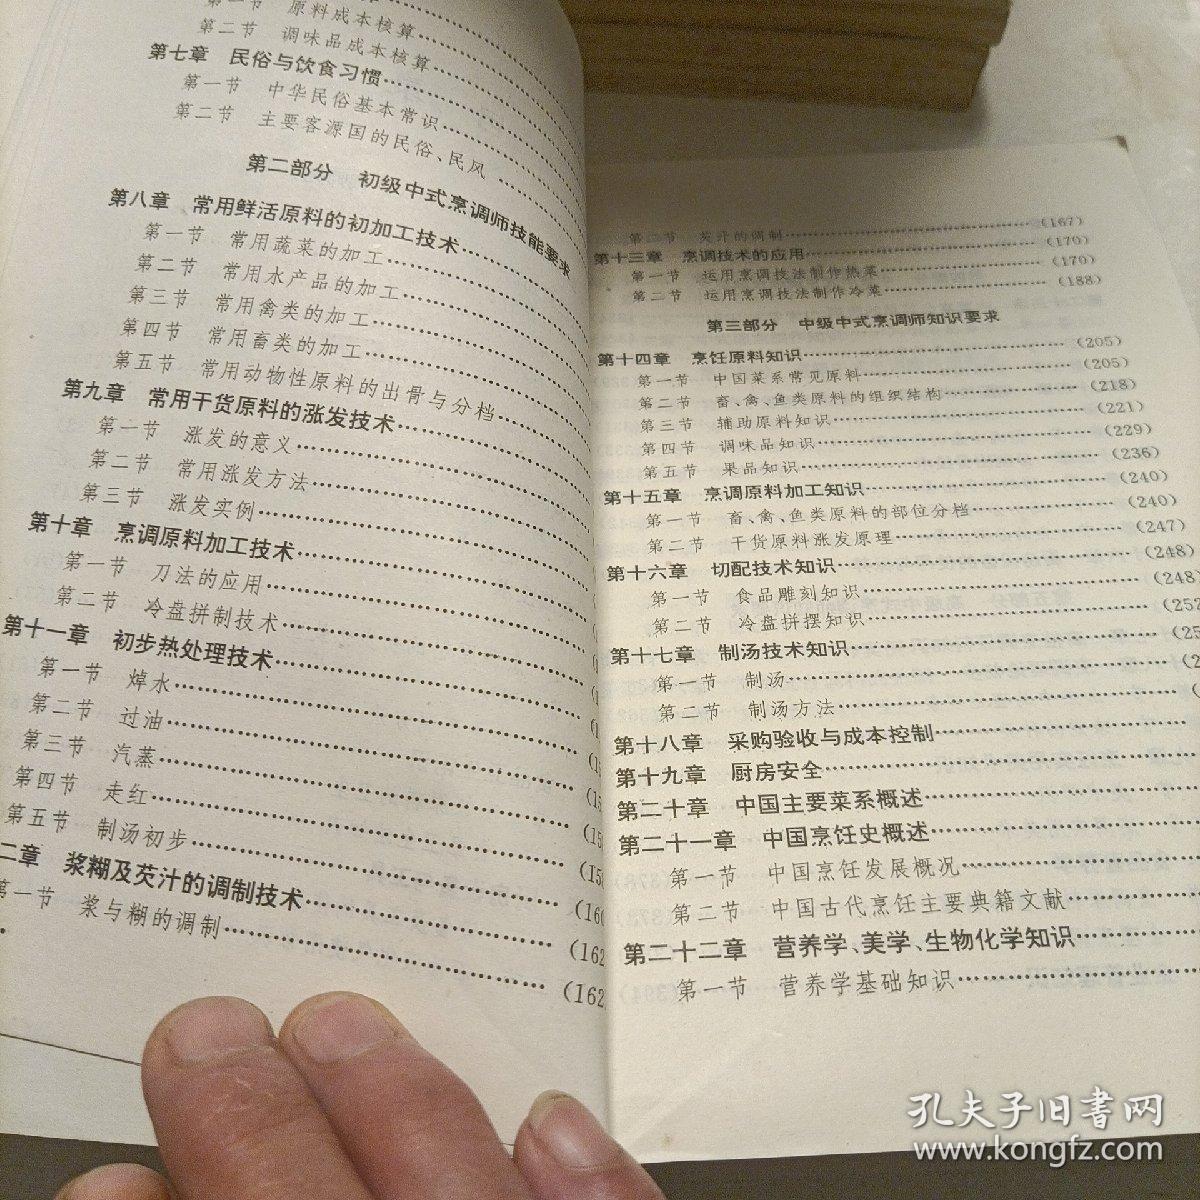 第一节 原料成本核算
第二节 调味品成本核算
第七章 民俗与饮食习惯
第一节 中华民俗基本常识
第二节 主要客源国的民俗、民风
第二部分 初级中式烹调师技能要求
第八章 常用鲜活原料的初加工技术
第一节 常用蔬菜的加工
第二节 常用水产品的加工
第三节 常用禽类的加工
第四节 常用畜类的加工
第五节 常用动物性原料的出骨与分档
第九章 常用干货原料的涨发技术
第一节 涨发的意义
第二节 常用涨发方法
第三节 涨发实例
第十章 烹调原料加工技术
第一节 刀法的应用
第二节 冷盘拼制技术
第十一章 初步热处理技术
第一节 焯水
第二节 过油
第三节 汽蒸
第四节 走红
第五节 制汤初步
二章 浆糊及芡汁的调制技术 (162
第一节 浆与糊的调制 (162
第二节 芡汁的调制 (167)
第十三章 烹调技术的应用 (170)
第一节 运用烹调技法制作热菜 (170)
第二节 运用烹调技法制作冷菜 (188)
第三部分 中级中式烹调师知识要求
第十四章 烹饪原料知识 (205)
第一节 中国菜系常见原料 (205)
第二节 畜、禽、鱼类原料的组织结构 (218)
第三节 辅助原料知识 (221)
第四节 调味品知识 (229)
第五节 果品知识 (236)
第十五章 烹调原料加工知识 (240)
第一节 畜、禽、鱼类原料的部位分档 (240)
第二节 干货原料涨发原理 (247)
第十六章 切配技术知识 (248)
第一节 食品雕刻知识 (248)
第二节 冷盘拼摆知识 (252
第十七章 制汤技术知识 (25
第一节 制汤 (2
第二节 制汤方法 (
第十八章 采购验收与成本控制
第十九章 厨房安全
第二十章 中国主要菜系概述
第二十一章 中国烹饪史概述
第一节 中国烹饪发展概况
第二节 中国古代烹饪主要典籍文献
第二十二章 营养学、美学、生物化学知识
第一节 营养学基础知识
孔夫子旧书网
www.kongfz.com